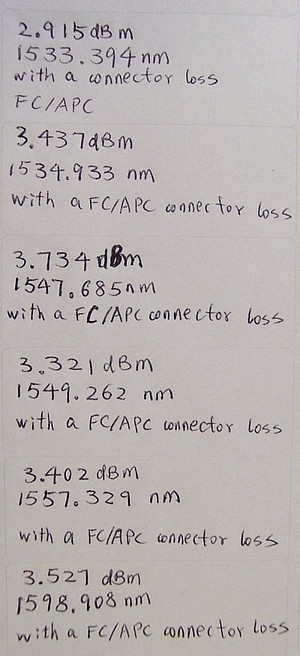 2.915dBm
1533.394nm
with a connector loss
FC/APC
3.437dBm
1534.933 nm
with a FC/APC connector loss
3.734dBm
1547.685nm
with a FC/APC connector loss
3.321dBm
1549.262 nm
with a FC/APC connector loss
3.402dBm
1557.329 nm
with a FC/APC connector loss
3.527 dBm
1598.908nm
with a FC/APC connector loss